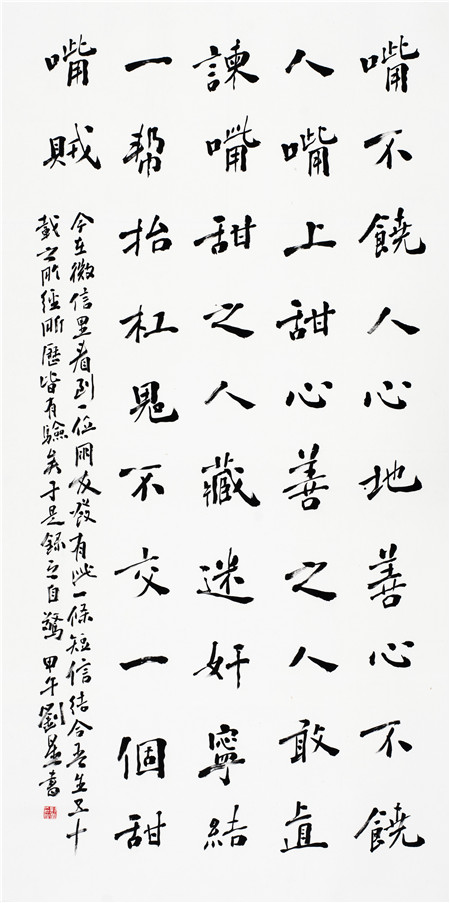 嘴不饒人心地善心不饒
人嘴上甜心善之人敢直
諫嘴甜之人藏迷奸寧結
一帮抬杠鬼不交一個甜
嘴賊
今在微信里看到一位朋友發有此一條短信結合吾生五十
載之所經所歷皆有驗矣于是錄之自驚 甲午劉墨書